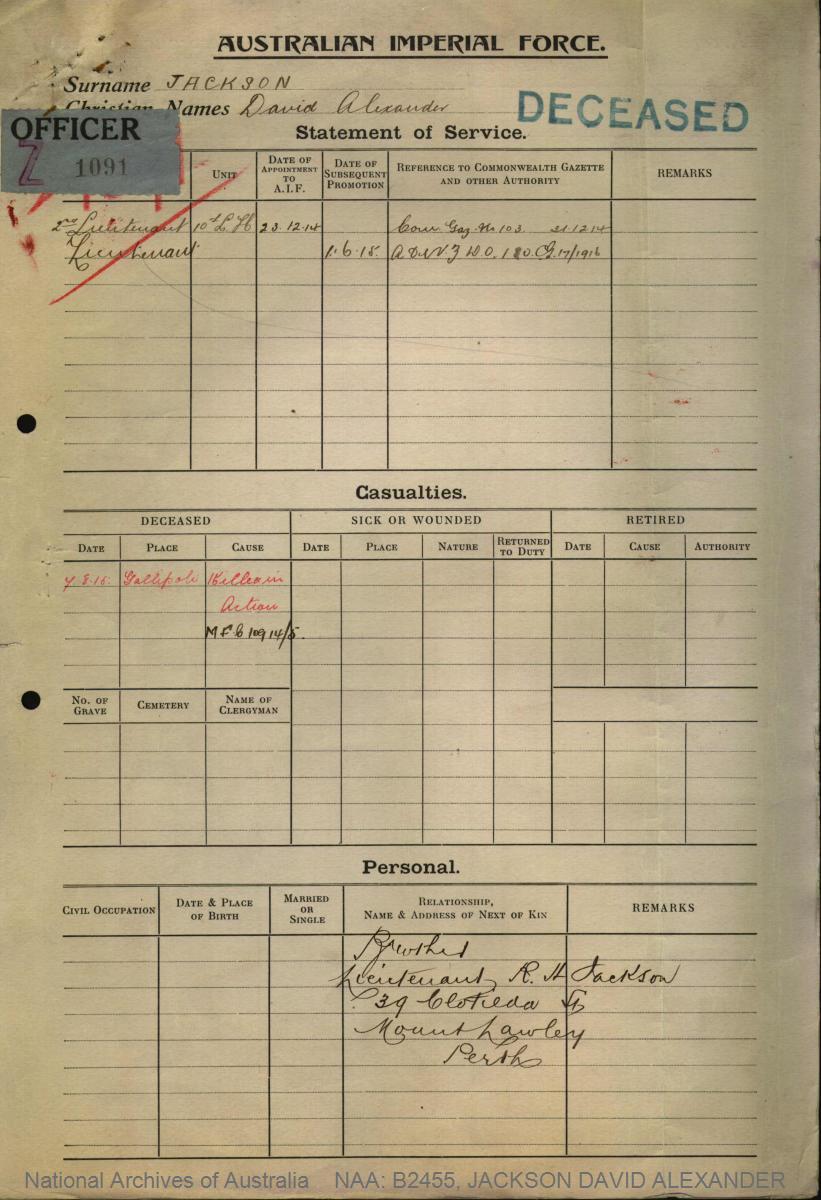 AUSTRALIAN IMPERIAL FORCE.
Surname JACKSON
Christian Names David Alexander
DECEASED
OFFICER
Z 1091
Statement of Service.
UNIT DATE OF APPOINTMENT TO A.I.F. DATE OF SUBSEQUENT PROMOTION REFERENCE TO COMMONWEALTH GAZETTE AND OTHER AUTHORITY REMARKS
2nd Lieutenant 10th L.H 23.12.14 Com Gaz. No 103. 31.12.14
Lieutenant 1.6.15. 17/1916
Casualties.
DECEASED SICK OR WOUNDED RETIRED
DATE PLACE CAUSE DATE PLACE NATURE RETURNED TO DUTY DATE CAUSE AUTHORITY
7.8.15. Gallipoli Killed in
Action
NO. OF GRAVE CEMETERY NAME OF CLERGYMAN
Personal.
CIVIL OCCUPATION DATE & PLACE OF BIRTH MARRIED OR SINGLE RELATIONSHIP, NAME & ADDRESS OF NEXT OF KIN REMARKS
Brother
Lieutenant R. H Jackson
39 Clotilda St
Mount Lawley
Perth
National Archives of Australia NAA: B2455, JACKSON DAVID ALEXANDER